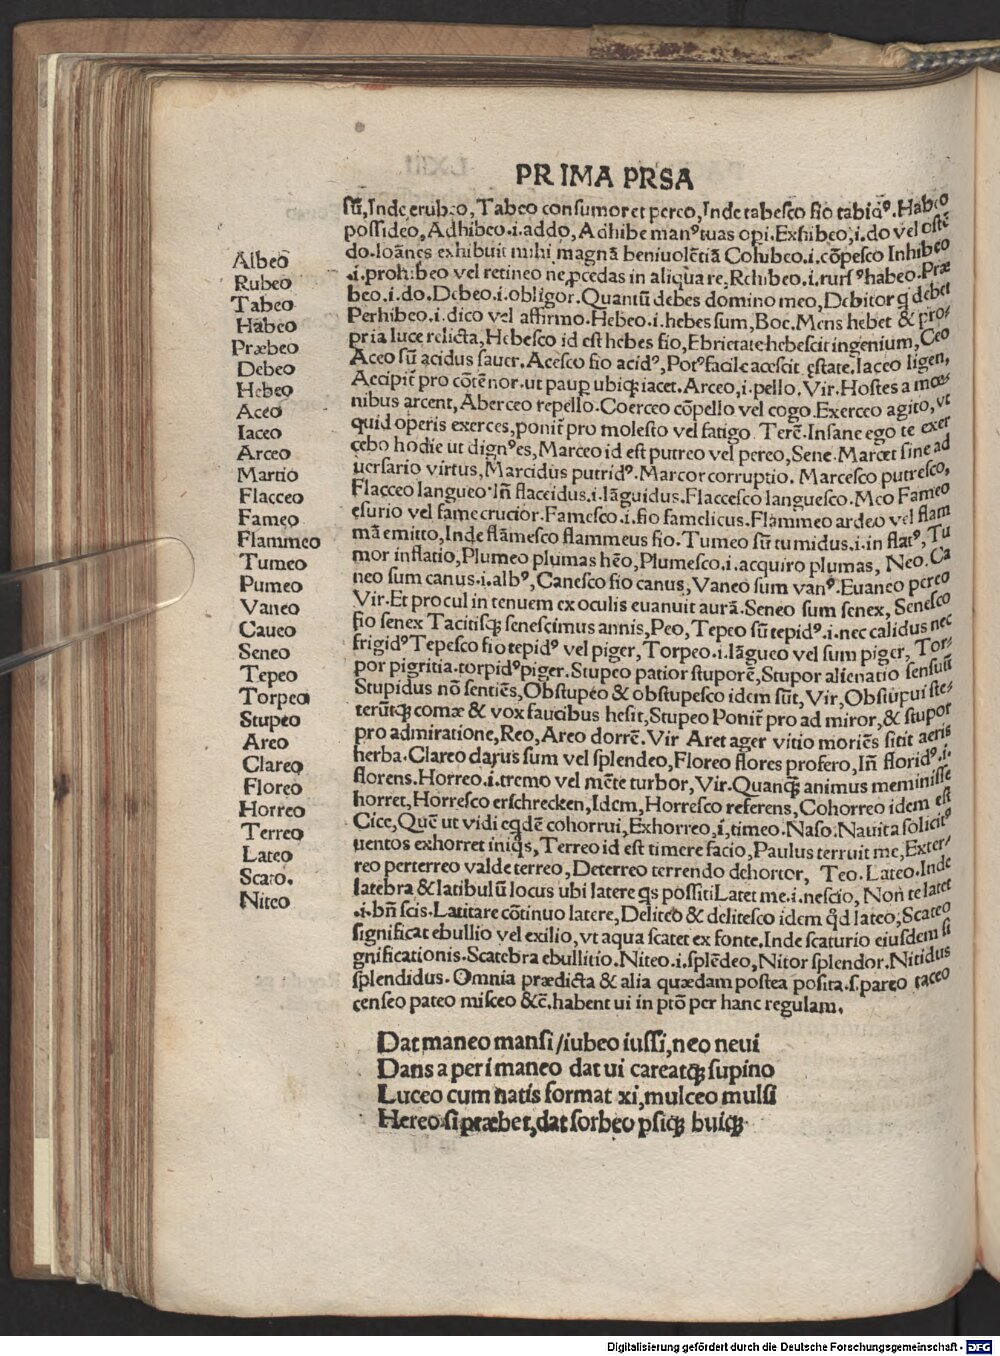 PRIMA PRSA
sū, Inde erubeo, Tabeo consumor et pereo, Inde tabesco fio tabidꝰ. Habeo
possideo, Adhibeo .i. addo, Adhibe manꝰ tuas opi. Exhibeo, i. do vel ostē
do. Ioānes exhibuit mihi magnā beniuolētiā Cohibeo .i. cōpesco Inhibeo
.i. prohibeo vel retineo ne pcedas in aliqua re, Rehibeo .i. rursꝰ habeo. Præ
beo .i. do. Debeo .i. obligor. Quantū debes domino meo, Debitor q̇ debet
Perhibeo .i. dico vel affirmo. Hebeo .i. hebes sum, Boe. Mens hebet & pro-
pria luce relicta, Hebesco id est hebes fio, Ebrietate hebescit ingenium, Ceo
Aceo sū acidus sauer. Acesco fio acidꝰ, Potꝰ facile acescit ęstate. Iaceo ligen,
Accipit̄ pro cōtēnor. ut paup ubiqꝫ iacet. Arceo, i. pello. Vir. Hostes a mœ-
nibus arcent, Aberceo repello. Coerceo cōpello vel cogo. Exerceo agito, vt
quid operis exerces, ponit̄ pro molesto vel fatigo. Terē. Insane ego te exer
cebo hodie ut dignꝰ es, Marceo id est putreo vel pereo, Sene. Marcet sine ad
uersario virtus, Marcidus putridꝰ. Marcor corruptio. Marcesco putresco,
Flacceo langueo. Iñ flaccidus .i. lāguidus. Flaccesco languesco. Meo Fameo
esurio vel fame crucior. Famesco .i. fio famelicus. Flammeo ardeo vel flam
mā emitto, Inde flāmesco flammeus fio. Tumeo sū tumidus .i. in flatꝰ, Tu
mor inflatio, Plumeo plumas hēo, Plumesco .i. acquiro plumas, Neo. Ca
neo sum canus .i. albꝰ, Canesco fio canus, Vaneo sum vanꝰ. Euaneo pereo
Vir. Et procul in tenuem ex oculis euanuit aurā. Seneo sum senex, Senesco
fio senex Tacitisqꝫ senescimus annis, Peo, Tepeo sū tepidꝰ .i. nec calidus nec
frigidꝰ Tepesco fio tepidꝰ vel piger, Torpeo .i. lāgueo vel sum piger, Tor-
por pigritia. torpidꝰ piger. Stupeo patior stuporē, Stupor alienatio sensuū
Stupidus nō sentiēs, Obstupeo & obstupesco idem sūt, Vir, Obstupui ste-
terūtqꝫ comæ & vox faucibus hesit, Stupeo Ponit̄ pro ad miror, & stupor
pro admiratione, Reo, Areo dorrē. Vir Aret ager vitio moriēs sitit aeris
herba. Clareo clarus sum vel splendeo, Floreo flores profero, Iñ floridꝰ .i.
florens. Horreo .i. tremo vel mēte turbor, Vir. Quanqꝫ animus meminisse
horret, Horresco erschrecken, Idem, Horresco referens, Cohorreo idem est
Cice, Quē ut vidi eqdē cohorrui, Exhorreo, i, timeo. Naso. Nauita solicitꝰ
uentos exhorret iniqs, Terreo id est timere facio, Paulus terruit me, Exter-
reo perterreo valde terreo, Deterreo terrendo dehortor, Teo. Lateo. Inde
latebra & latibulū locus ubi latere qs possit Latet me .i. nescio, Non te latet
.i. bñ scis. Latitare cōtinuo latere, Deliteo & delitesco idem qd lateo, Scateo
significat ebullio vel exilio, vt aqua scatet ex fonte. Inde scaturio eiusdem si
gnificationis. Scatebra ebullitio. Niteo .i. splēdeo, Nitor splendor. Nitidus
splendidus. Omnia prædicta & alia quædam postea posita. s. pareo taceo
censeo pateo misceo &c̄. habent ui in ptō per hanc regulam.
Dat maneo mansi / iubeo iussi, neo neui
Dans a per i maneo dat ui careatqꝫ supino
Luceo cum natis format xi, mulceo mulsi
Hereo si præbet, dat sorbeo psiqꝫ buiqꝫ
Albeo
Rubeo
Tabeo
Habeo
Præbeo
Debeo
Hebeo
Aceo
Iaceo
Arceo
Martio
Flacceo
Fameo
Flammeo
Tumeo
Pumeo
Vaneo
Caueo
Seneo
Tepeo
Torpeo
Stupeo
Areo
Clareo
Floreo
Horreo
Terreo
Lateo
Scato.
Niteo
Digitalisierung gefördert durch die Deutsche Forschungsgemeinschaft - DFG